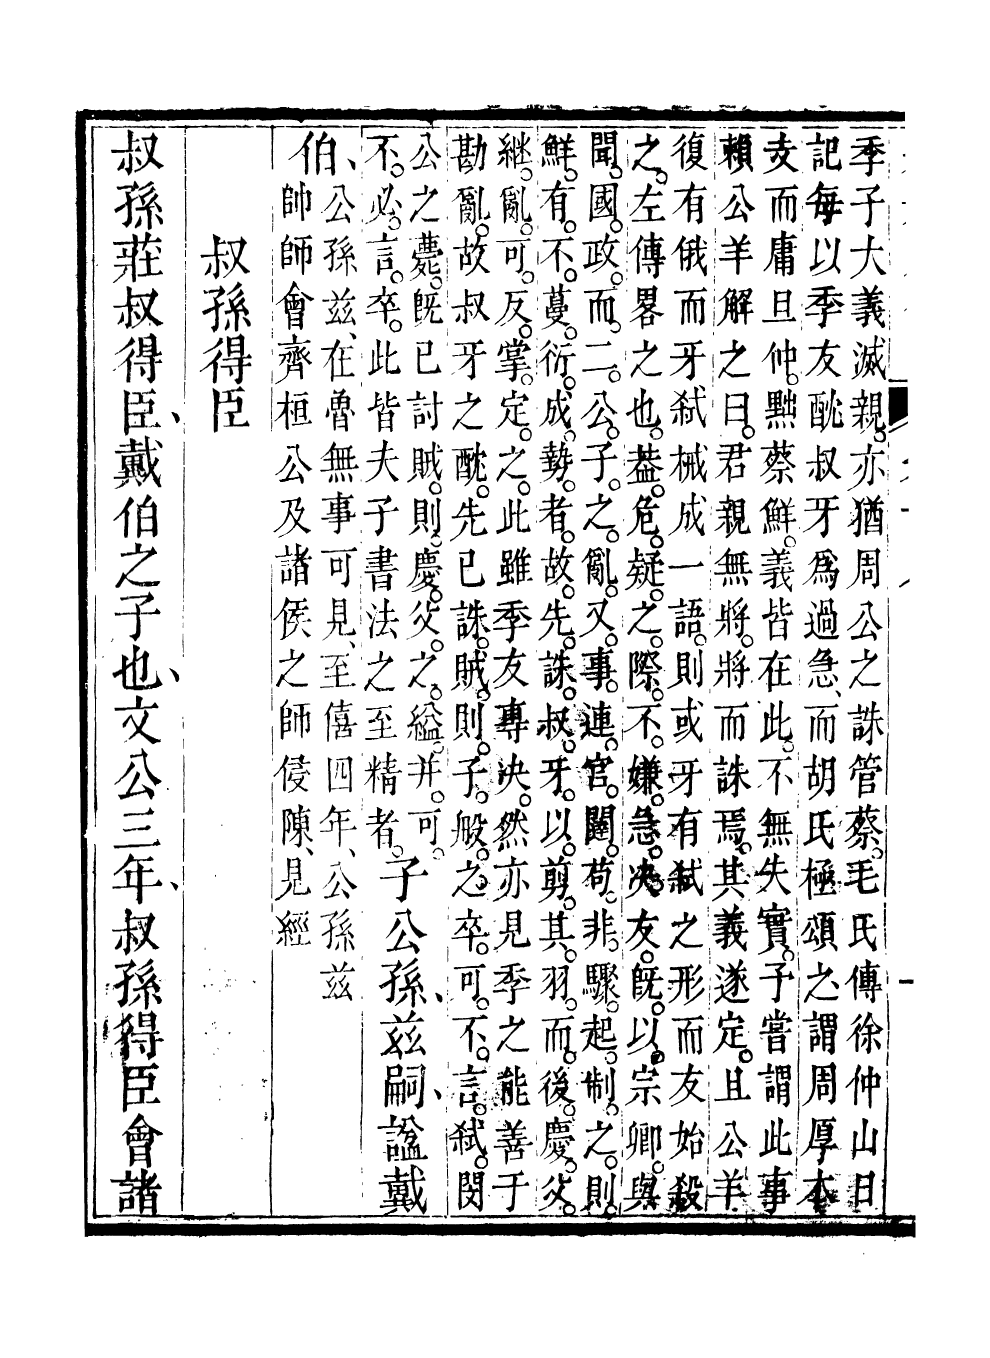 季子大義滅親。亦猶周公之誅管蔡。毛氏傳徐仲山日
記每以季友酖叔牙爲過急、而胡氏極頌之謂周厚本
支而庸旦仲。黜蔡鮮。義皆在此。不無失實。予嘗謂此事
賴公羊解之曰。君親無將。將而誅焉。其義遂定。且公羊
復有俄而牙弒械成一語。則或牙有弒之形而友始殺
之。左傳畧之也。葢。危。疑。之。際。不。嫌。急。決。友。旣。以。宗卿。與
聞。國。政。而。二。公。子。之。亂。又。事。連。宫。闈。苟。非。驟。起。制。之。則。
鮮。有。不。蔓。衍。成。勢。者。故。先。誅。叔。牙。以。剪。其。羽。而。後。慶。父。
継。亂。可。反。掌。定。之。此雖季友專決。然亦見季之能善于
勘亂。故叔牙之酖。先已誅。賊。則。子。般。之。卒。可。不。言。弒。閔
公之薨。旣已討賊。則。慶。父。之。縊。并。可。
不。必。言。卒。此皆夫子書法之至精者。
子公孫、兹嗣、諡戴
伯、
公孫兹、在魯無事可見、至僖四年、公孫兹
帥師會齊桓公及諸侯之師侵陳、見經
叔孫得臣
叔孫莊叔得臣、戴伯之子也、文公三年、叔孫得臣會諸